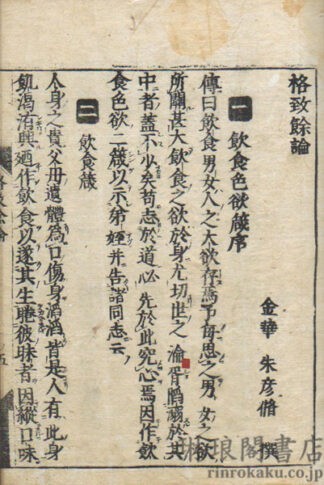 格致餘論
金華 朱彥脩 撰
一 飲食色欲箴序
傳曰飲食男女人之大欲存焉予每思之男女之欲
所關甚大飲食之欲於身尤切世之淪胥陷溺於其
中者蓋不少矣苟志於道必先於此究心焉因作飲
食色欲二箴以示弟姪并告諸同志云
二 飲食箴
人身之貴父母遺體爲口傷身滔滔皆是人有此身
飢渴洊興迺作飲食以遂其生睠彼昧者因縱口味
琳琅閣書店
rinrokaku.co.jp